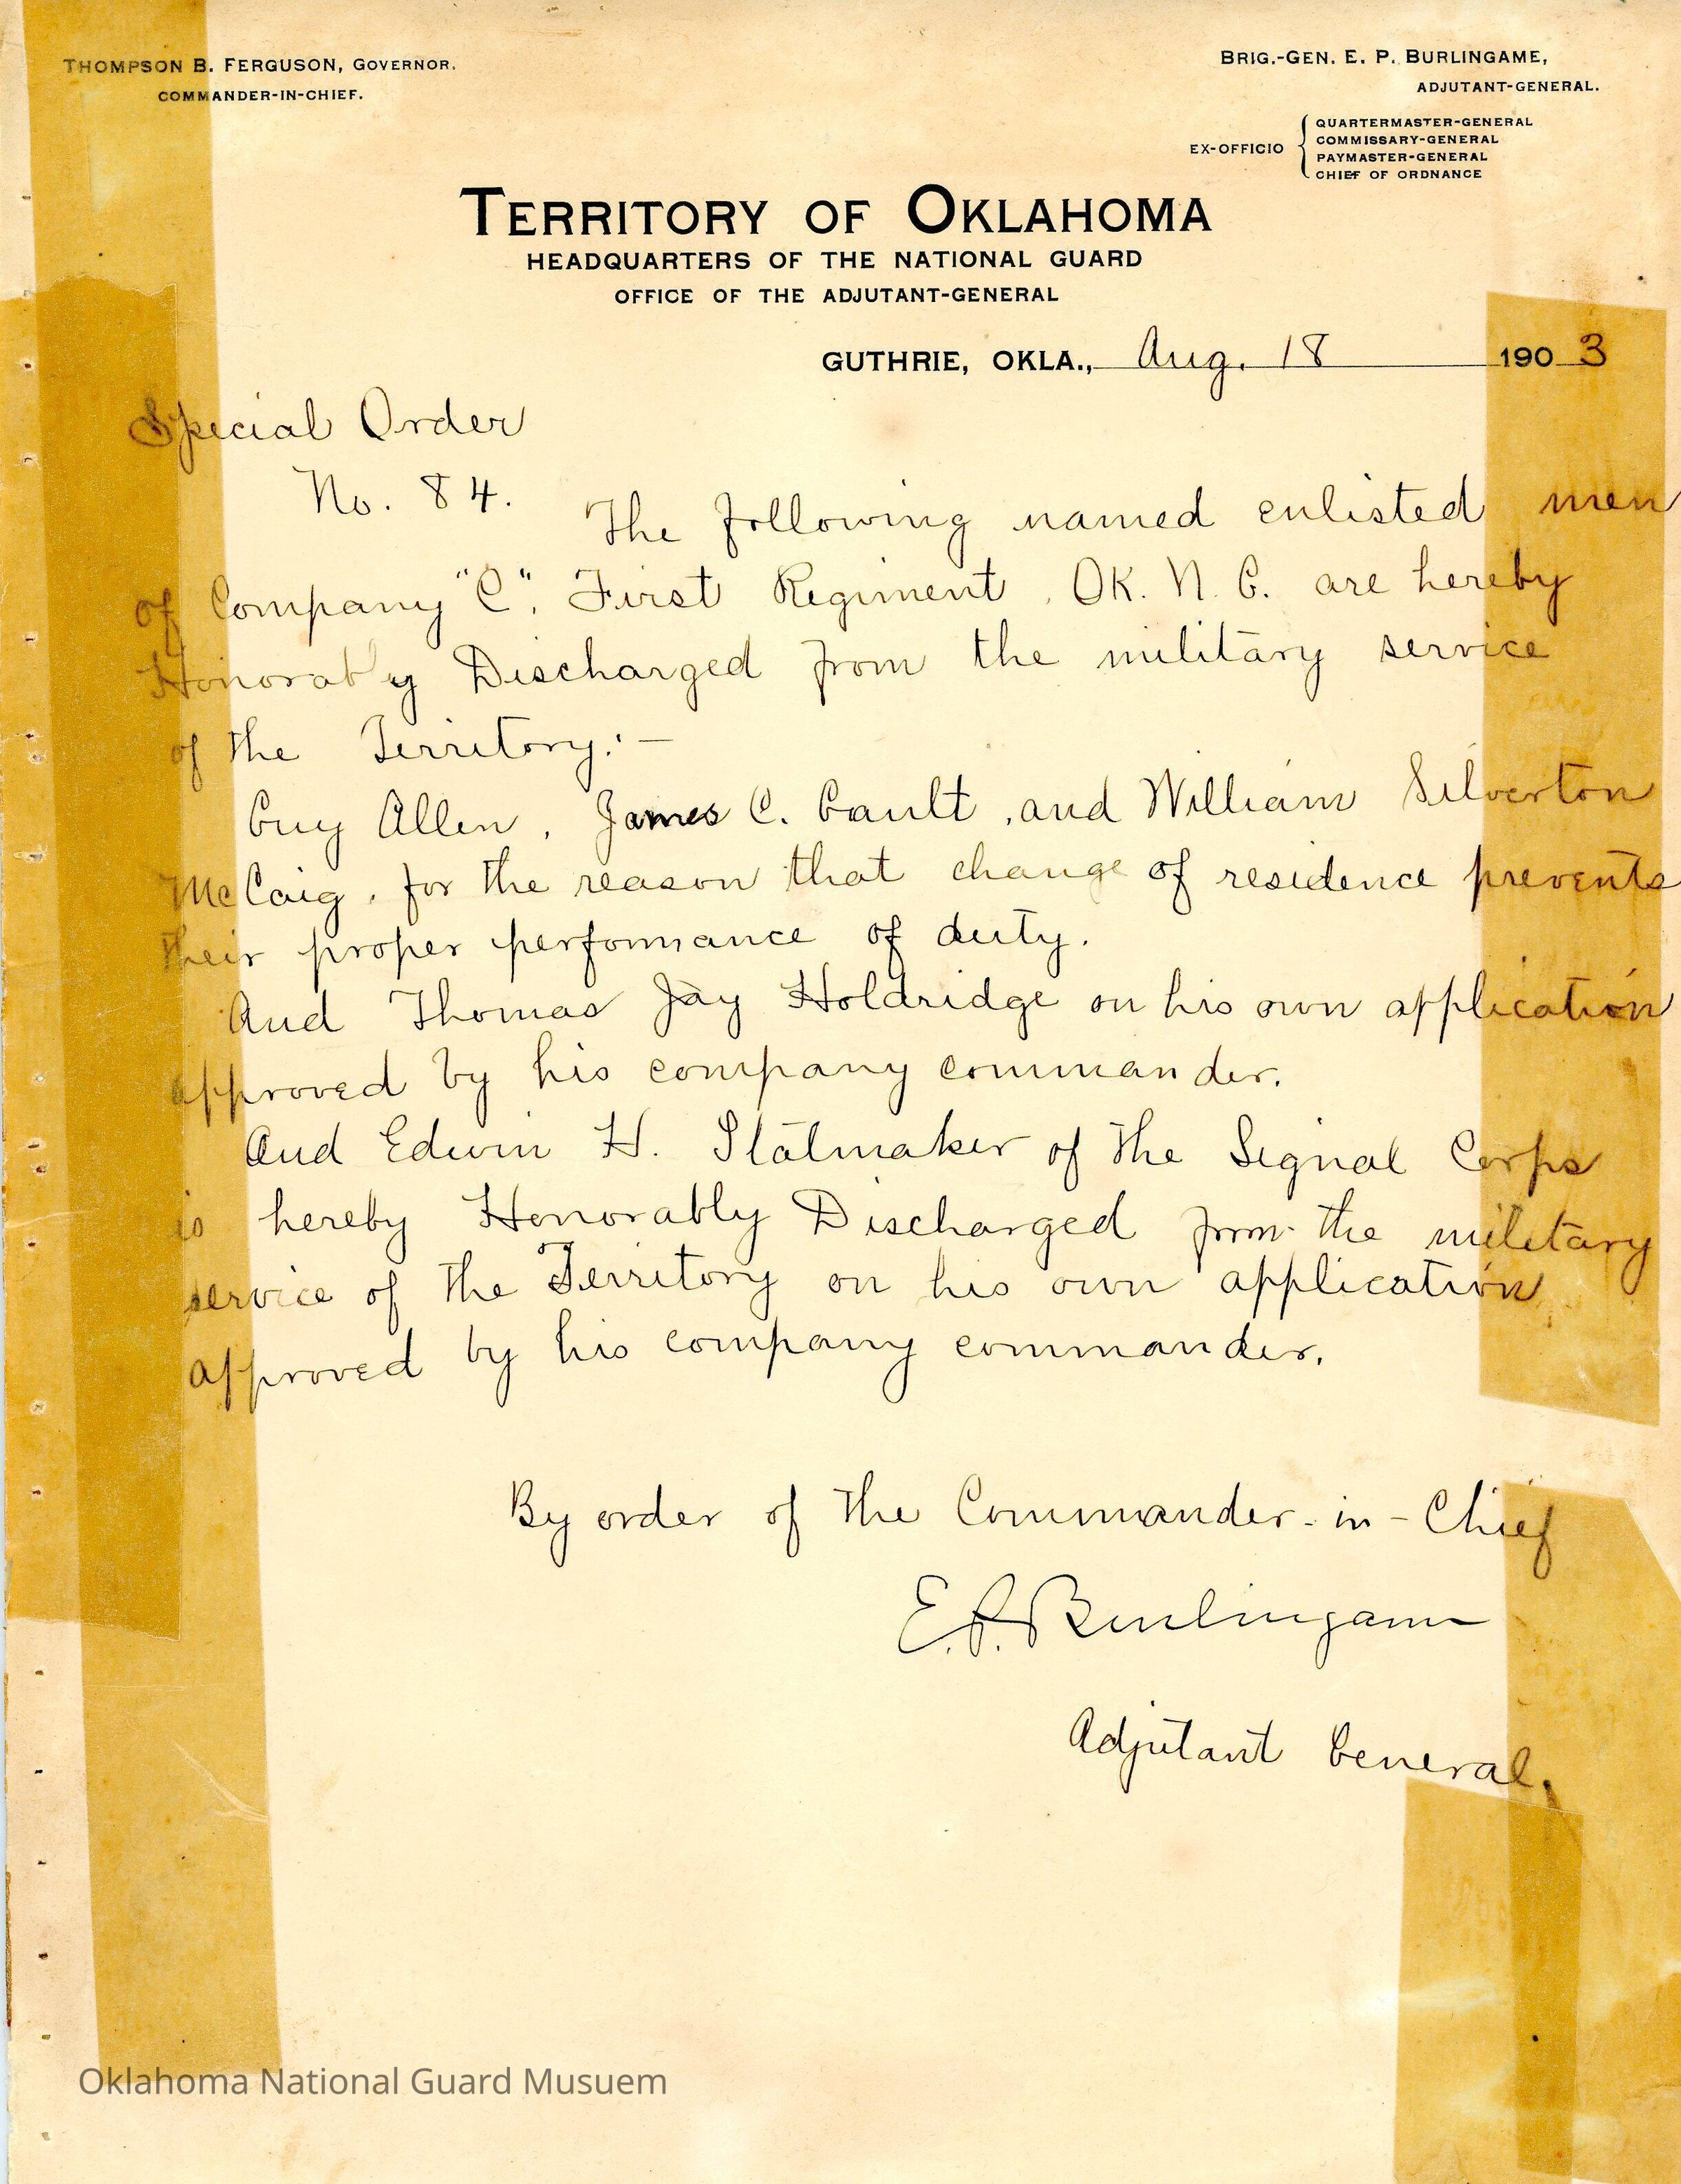 THOMPSON B. FERGUSON, GOVERNOR.
COMMANDER-IN-CHIEF.
BRIG.-GEN. E. P. BURLINGAME,
ADJUTANT-GENERAL.
EX-OFFICIO
QUARTERMASTER-GENERAL
COMMISSARY-GENERAL
PAYMASTER-GENERAL
CHIEF OF ORDNANCE
TERRITORY OF OKLAHOMA
HEADQUARTERS OF THE NATIONAL GUARD
OFFICE OF THE ADJUTANT-GENERAL
GUTHRIE, OKLA., Aug. 18 1903
Special Order
No. 84.
The following named enlisted men
of Company "C", First Regiment, OK. N. G. are hereby
Honorably Discharged from the military service
of the Territory:-
Guy Allen, James C. Gault, and William Silverton
McCaig, for the reason that change of residence prevents
their proper performance of duty.
And Thomas Jay Holdridge on his own application
approved by his company commander.
And Edwin H. Statmaker of the Signal Corps
is hereby Honorably Discharged from the military
service of the Territory on his own application
approved by his company commander.
By order of the Commander-in-Chief
E. P. Burlingame
Adjutant General.
Oklahoma National Guard Musuem